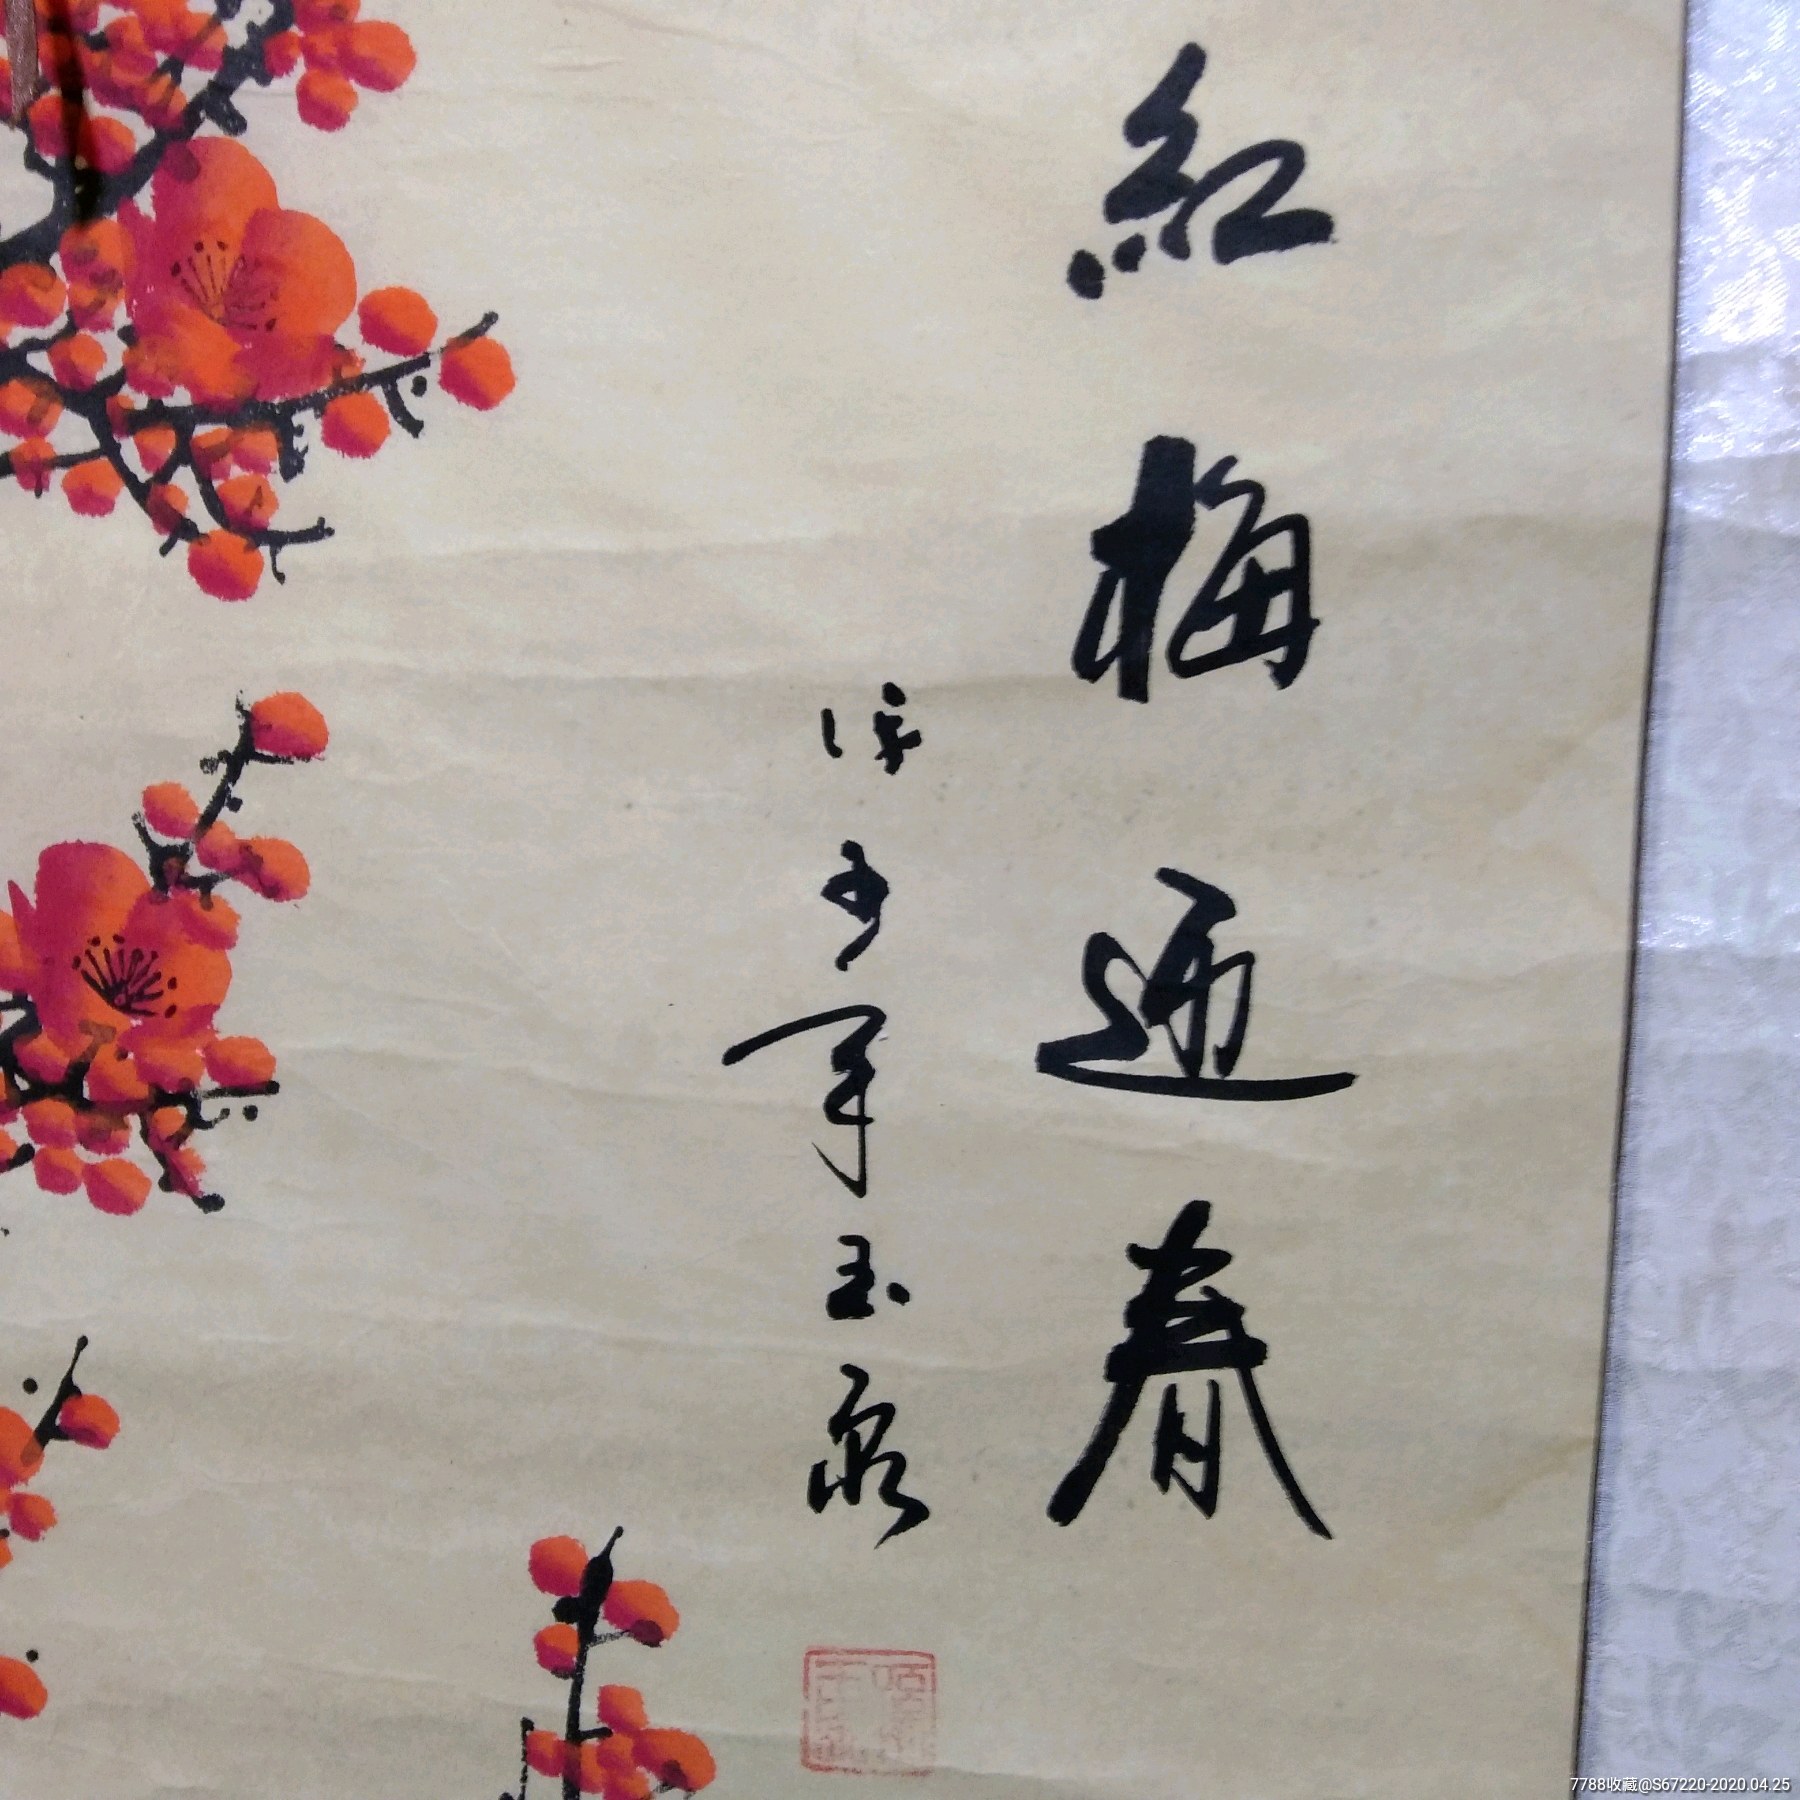 紅梅通春
年玉泉
7788收藏@S67220-2020.04.25